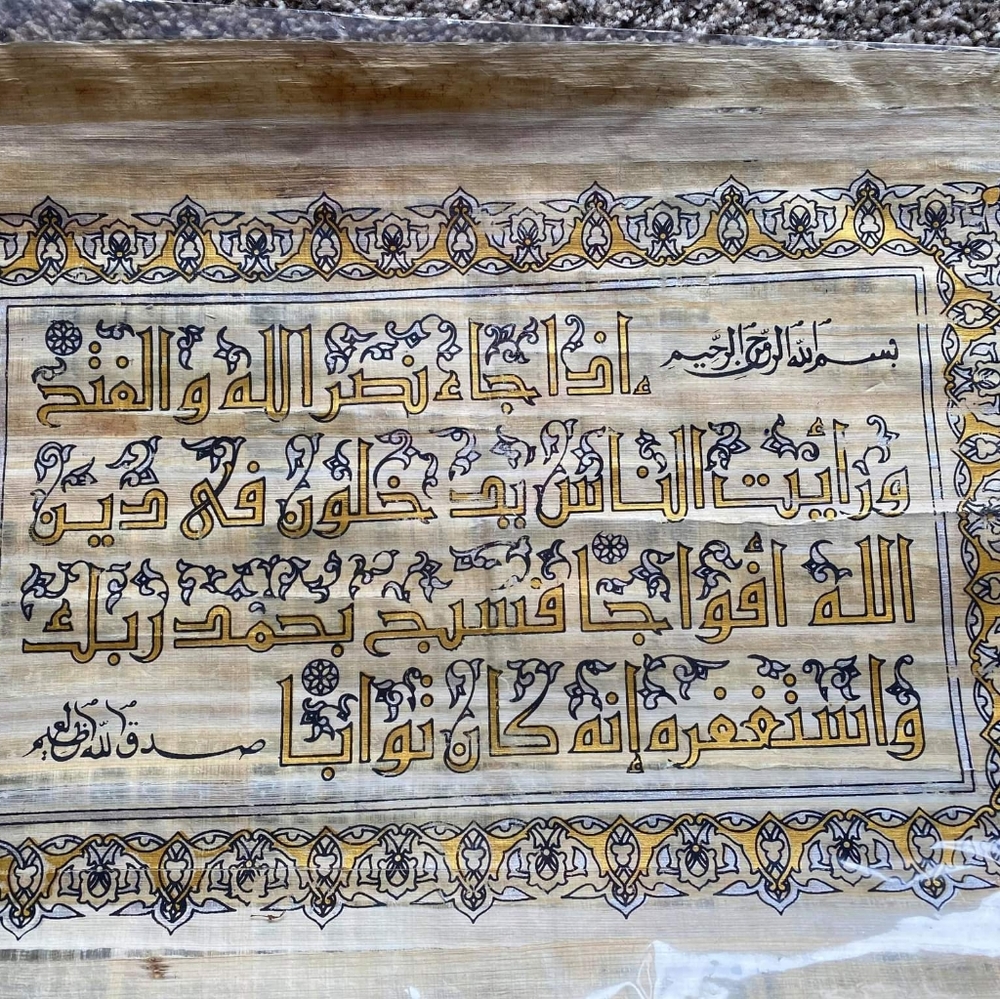 بسم الله الرحمن الرحيم
إذا جاء نصر الله والفتح
ورأيت الناس يدخلون فى دين
الله أفواجا فسبح بحمد ربك
واستغفره إنه كان توابا
صدق الله العظيم